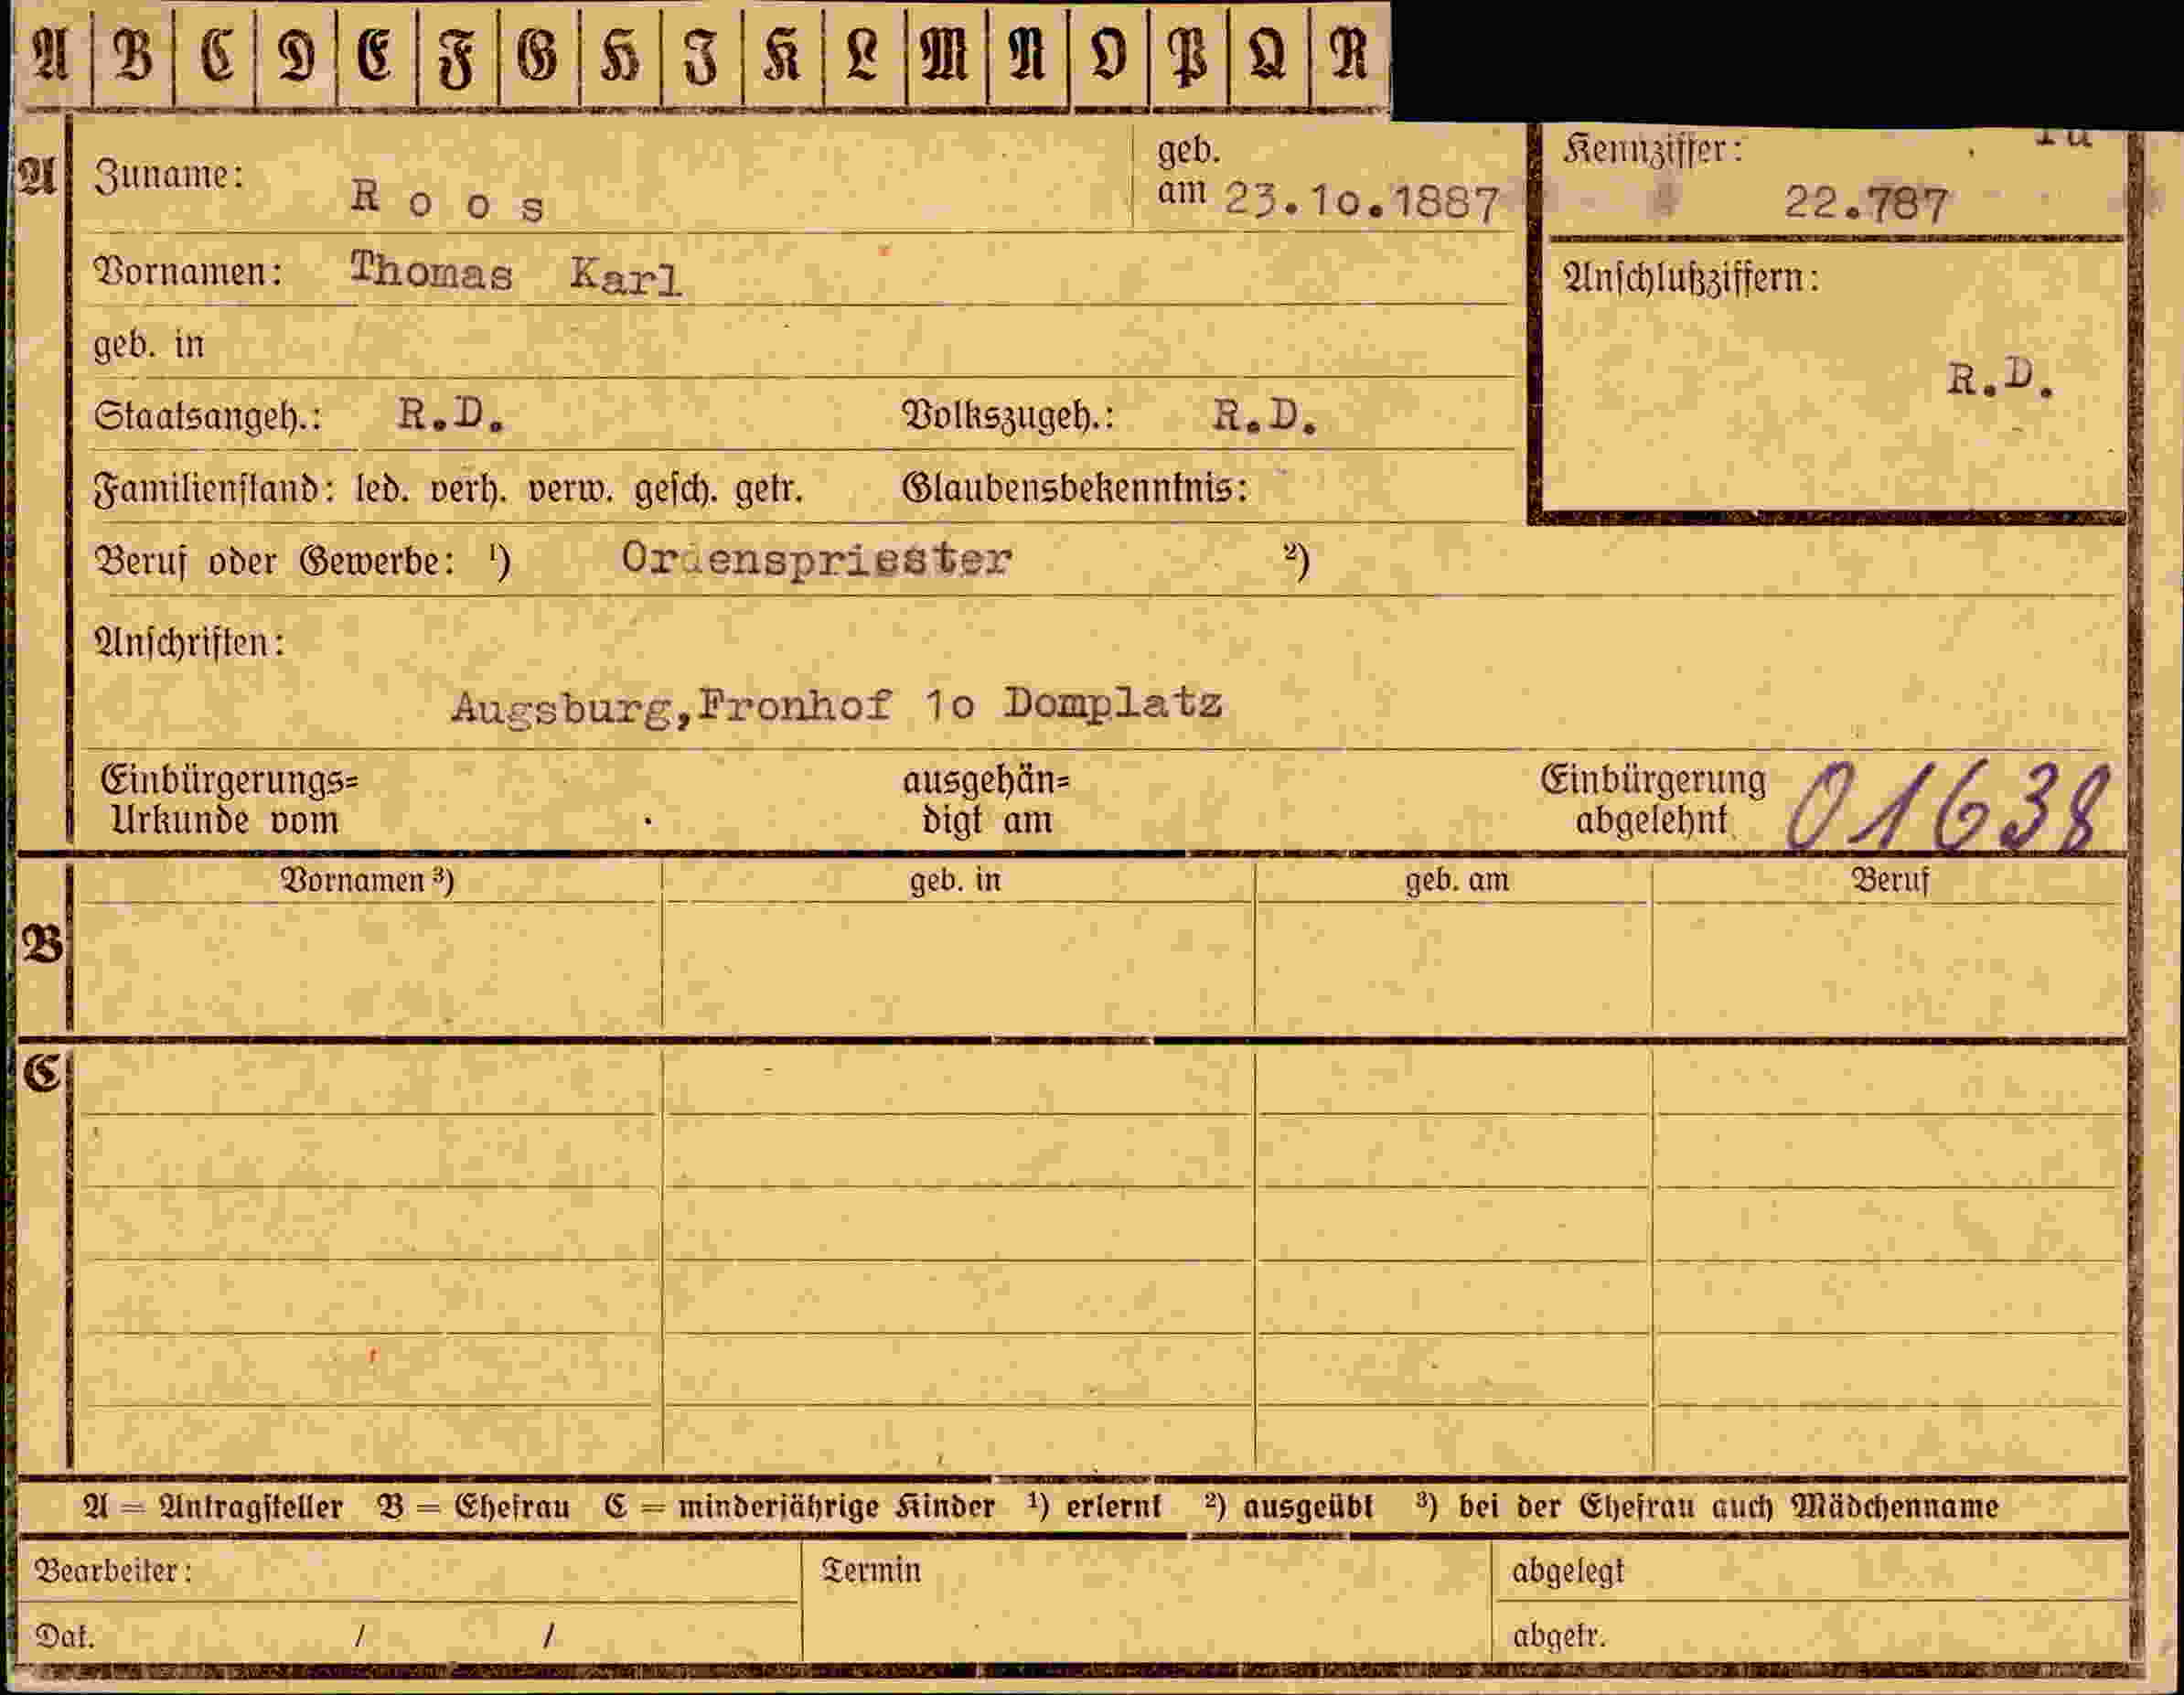 A B C D E F G H I K L M N O P Q R
Kennziffer:
A Zuname: Roos geb. am 23.10.1887 22.787
Vornamen: Thomas Karl Anschlußziffern:
geb. in
R.D.
Staatsangeh.: R.D. Volkszugeh.: R.D.
Familienstand: led. verh. verw. gesch. getr. Glaubensbekenntnis:
Beruf oder Gewerbe: ¹) Ordenspriester ²)
Anschriften:
Augsburg,Fronhof 1o Domplatz
Einbürgerungs= ausgehän= Einbürgerung 01638
Urkunde vom digt am abgelehnt
Vornamen ³) geb. in geb. am Beruf
B
C
A = Antragsteller B = Ehefrau C = minderjährige Kinder ¹) erlernt ²) ausgeübt ³) bei der Ehefrau auch Mädchenname
Bearbeiter: Termin abgelegt
Dat. / / abgetr.